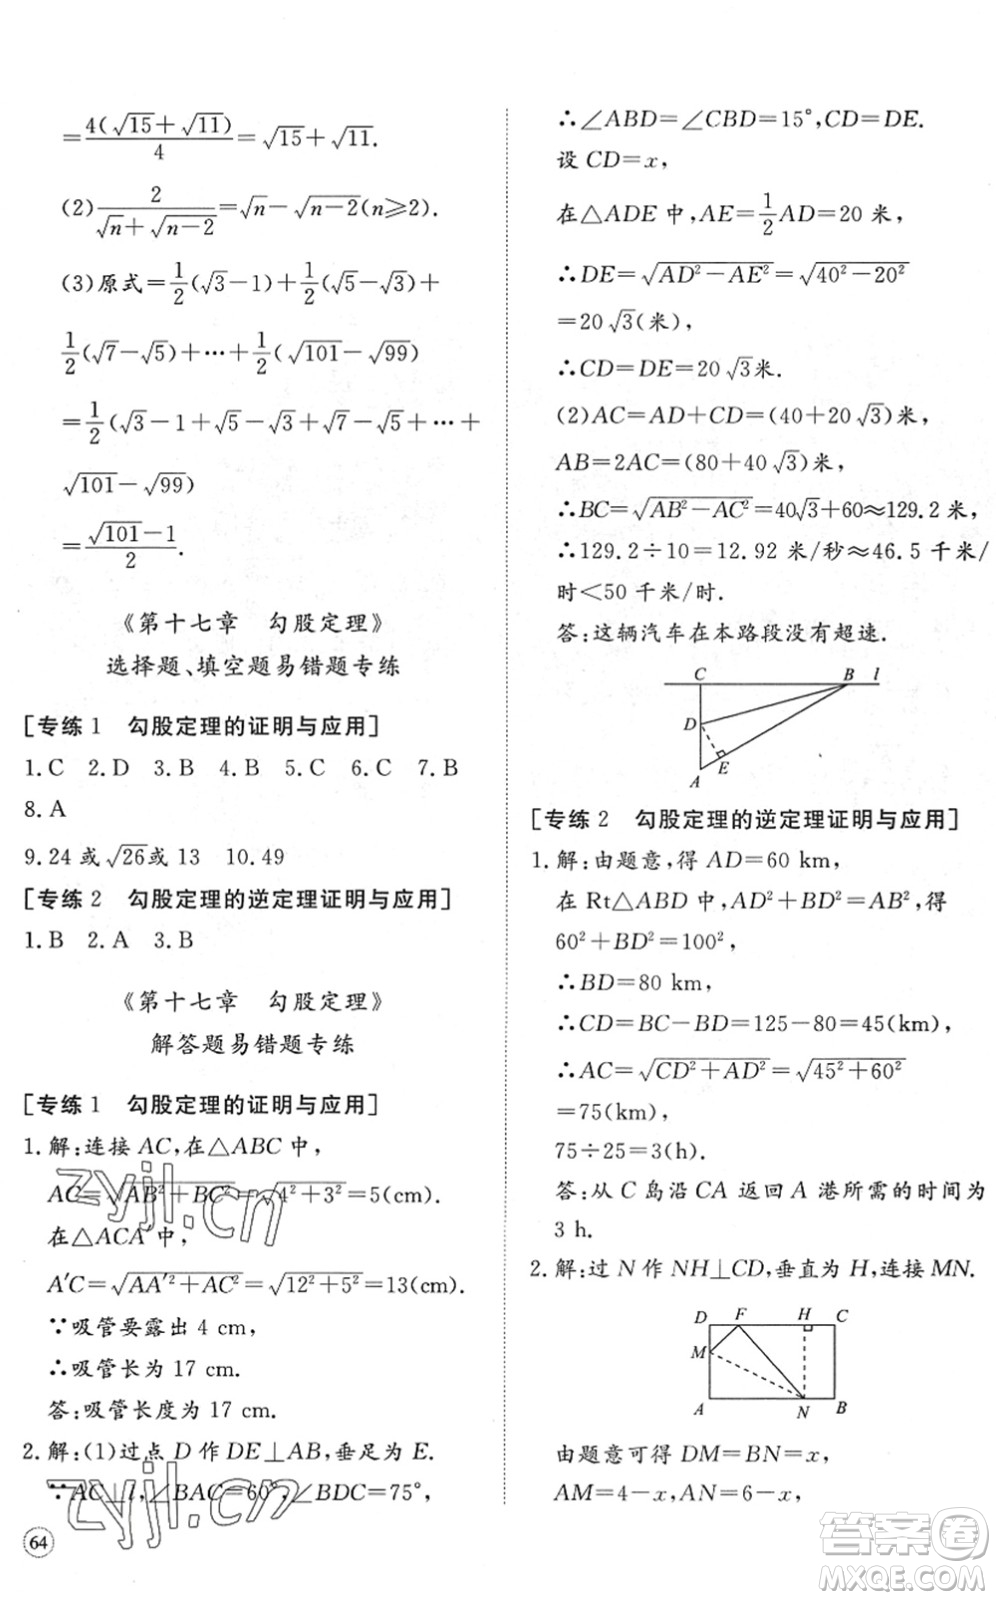 =4(√15+√11)/4=√15+√11.
(2)2/(√n+√(n-2))=√n-√(n-2)(n≥2).
(3)原式=1/2(√3-1)+1/2(√5-√3)+
1/2(√7-√5)+···+1/2(√101-√99)
=1/2(√3-1+√5-√3+√7-√5+···+
√101-√99)
=(√101-1)/2.
《第十七章 勾股定理》
选择题、填空题易错题专练
[专练1 勾股定理的证明与应用]
1.C 2.D 3.B 4.B 5.C 6.C 7.B
8.A
9.24或√26或13 10.49
[专练2 勾股定理的逆定理证明与应用]
1.B 2.A 3.B
《第十七章 勾股定理》
解答题易错题专练
[专练1 勾股定理的证明与应用]
1.解:连接AC,在△ABC中,
AC=√(AB²+BC²)=√(4²+3²)=5(cm).
在△ACA′中,
A′C=√(AA′²+AC²)=√(12²+5²)=13(cm).
∵吸管要露出4 cm,
∴吸管长为17 cm.
答:吸管长度为17 cm.
2.解:(1)过点D作DE⊥AB,垂足为E.
∵AC⊥l,∠BAC=60°,∠BDC=75°,
64
∴∠ABD=∠CBD=15°,CD=DE.
设CD=x,
在△ADE中,AE=1/2AD=20米,
∴DE=√(AD²-AE²)=√(40²-20²)
=20√3(米),
∴CD=DE=20√3米.
(2)AC=AD+CD=(40+20√3)米,
AB=2AC=(80+40√3)米,
∴BC=√(AB²-AC²)=40√3+60≈129.2米,
∴129.2÷10=12.92米/秒≈46.5千米/
时<50千米/时.
答:这辆汽车在本路段没有超速.
C B l
D
A E
[专练2 勾股定理的逆定理证明与应用]
1.解:由题意,得AD=60 km,
在Rt△ABD中,AD²+BD²=AB²,得
60²+BD²=100²,
∴BD=80 km,
∴CD=BC-BD=125-80=45(km),
∴AC=√(CD²+AD²)=√(45²+60²)
=75(km),
75÷25=3(h).
答:从C岛沿CA返回A港所需的时间为
3 h.
2.解:过N作NH⊥CD,垂直为H,连接MN.
D F H C
M
A N B
由题意可得DM=BN=x,
AM=4-x,AN=6-x,
zyjl.cn
zyjl.cn
答案卷
MXQE.COM